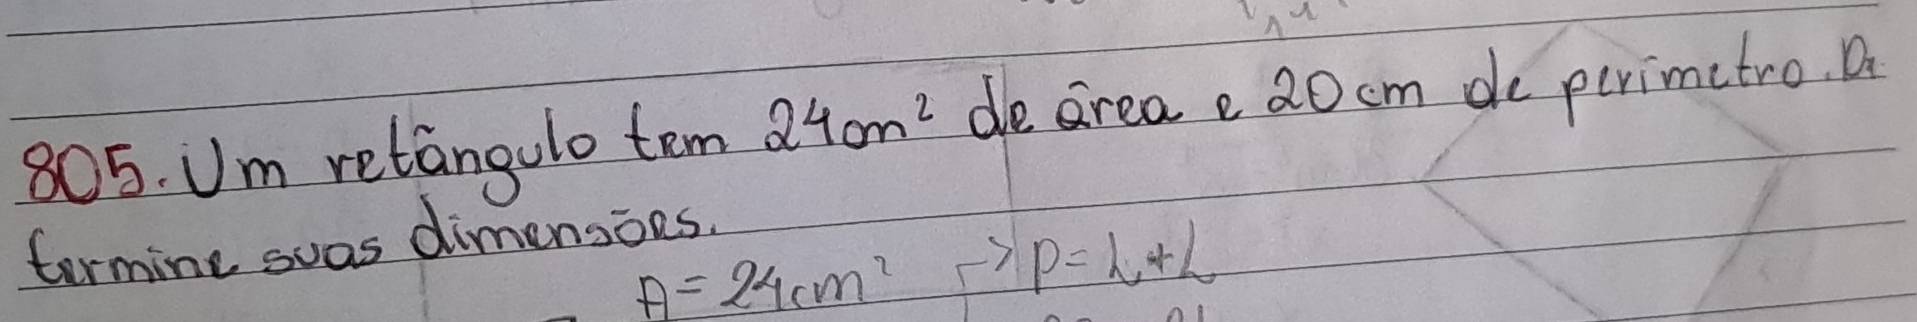 805. Um retângulo tem 24cm² de área e 20cm de perimetro. De
termine suas dimensões.
A = 24cm² → P = L + L